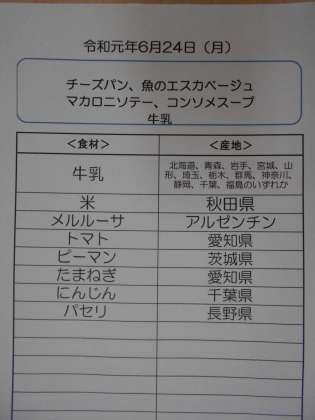 令和元年6月24日（月）
チーズパン、魚のエスカベージュ
マカロニソテー、コンソメスープ
牛乳
＜食材＞ ＜産地＞
牛乳 北海道、青森、岩手、宮城、山
形、埼玉、栃木、群馬、神奈川、
静岡、千葉、福島のいずれか
米 秋田県
メルルーサ アルゼンチン
トマト 愛知県
ピーマン 茨城県
たまねぎ 愛知県
にんじん 千葉県
パセリ 長野県